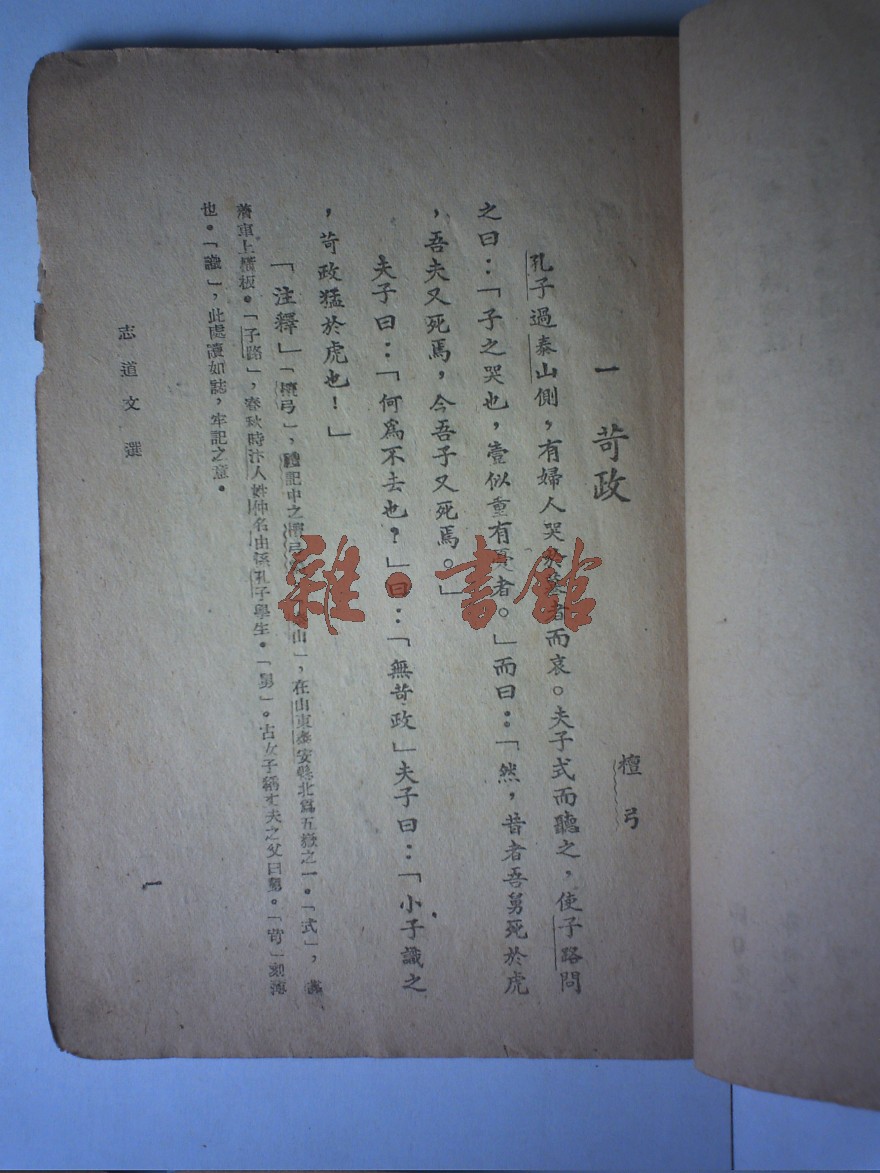 一 苛政 檀弓
孔子過泰山側，有婦人哭於墓者而哀。夫子式而聽之，使子路問
之曰：「子之哭也，壹似重有憂者。」而曰：「然，昔者吾舅死於虎
，吾夫又死焉，今吾子又死焉。」
夫子曰：「何爲不去也？」曰：「無苛政」夫子曰：「小子識之
，苛政猛於虎也！」
「注釋」「檀弓」，禮記中之檀弓 山」，在山東泰安縣北爲五嶽之一。「式」，
車上橫板。「子路」，春秋時汴人姓仲名由係孔子學生。「舅」。古女子稱丈夫之父曰舅。「苛」
也。「識」，此處讀如誌，牢記之意。
志道文選
一
雜·書館